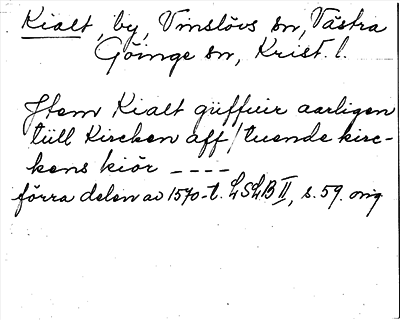 Kialt, by, Vinslövs sn, Västra
Göinge sn, Krist. l.
Item Kialt güffuir aarligen
tüll Kircken aff / tuende kirc-
kens kiör ----
förra delen av 1570-t. LSLB II, s. 59. orig